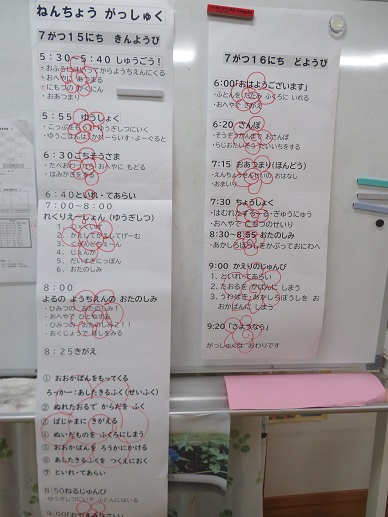 ねんちょう がっしゅく
7がつ15にち きんようび
5：30～5：40 しゅうごう！
・おへやに あつまる
・にもつの かくにん
・おあつまり
5：55 ゆうしょく
6：30ごちそうさま
・はみがきをする
6：40といれ・てあらい
7：00～8：00
れくりえーしょん（ゆうぎしつ）
4．じぇんか
5．だいすきにっぽん
6．おたのしみ
8：00
よるの ようちえんの おたのしみ
・ひみつの おたのしみ！
・ひみつの おたのしみ2！！
・おくじょうで ほしをみる
8：25きがえ
① おおかばんをもってくる
ろっかー：あしたきるふく（せいふく）
② ぬれたおるで からだを ふく
③ ぱじゃまに きがえる
④ ぬいだものを ふくろにしまう
⑤ おおかばんを ろうかにかける
⑥ あしたきるふくを つくえにおく
⑦ といれ・てあらい
8：50ねるじゅんび
・ゆうぎしつにいき ふとんにはいる
7がつ16にち どようび
6:00「おはようございます」
・ふとんを たたみ ふくろに いれる
・おへやで きがえ
6:20 さんぽ
・らじおたいそう だいいちをする
7:15 おあつまり（ほんどう）
・えんちょうせんせいの おはなし
・おまいり
7:30 ちょうしょく
・おへやで にもつのせいり
8:30～8:55 おたのしみ
・あかしろぼうしをかぶっておにわへ
9:00 かえりのじゅんび
1．といれ・てあらい
2．たおるを かばんに しまう
3．うわばき・あかしろぼうしを お
おかばんに しまう
9:20「さようなら」
がっしゅくは おわりです